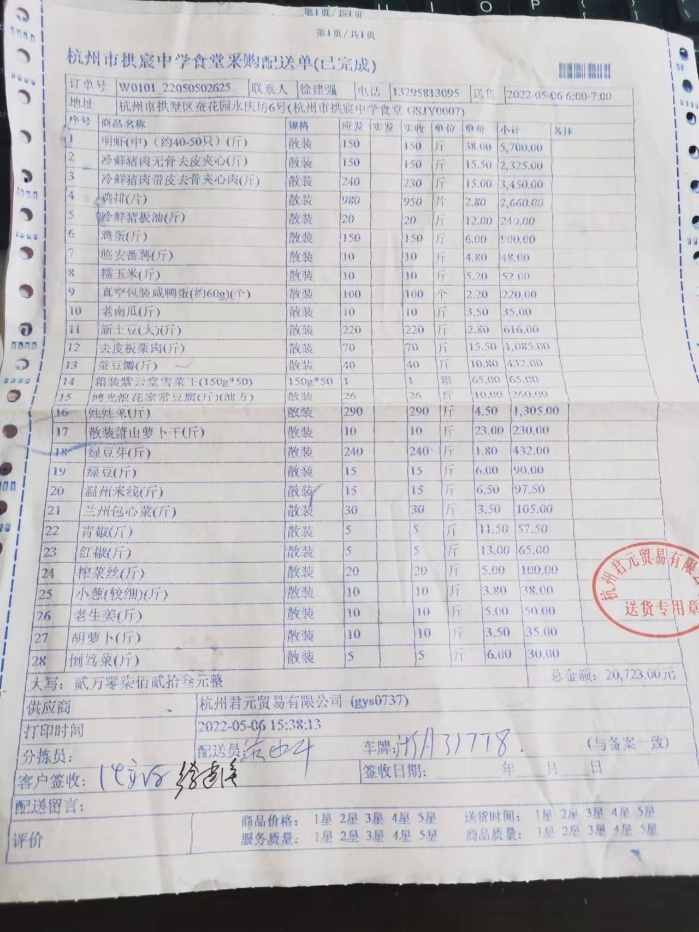 第1页/共1页
第1页/共1页
杭州市拱宸中学食堂采购配送单(已完成)
订单号 W0101_22050502625 联系人 徐建强 电话 13295813095 送货 2022-05-06 6:00-7:00
地址 杭州市拱墅区蚕花园永庆坊6号(杭州市拱宸中学食堂 GSJY0007)
序号 商品名称 规格 应发 实发 实收 单价 小计 备注
1 明虾(中)(约40-50只)(斤) 散装 150 150 斤 38.00 5,700.00
2 冷鲜猪肉无骨去皮夹心(斤) 散装 150 150 斤 15.50 2,325.00
3 冷鲜猪肉带皮去骨夹心肉(斤) 散装 240 230 斤 15.00 3,450.00
4 鸡排(片) 散装 980 950 片 2.80 2,660.00
5 冷鲜猪板油(斤) 散装 20 20 斤 12.00 240.00
6 鸡蛋(斤) 散装 150 150 斤 6.00 900.00
7 临安番薯(斤) 散装 10 10 斤 4.80 48.00
8 糯玉米(斤) 散装 10 10 斤 5.20 52.00
9 真空包装咸鸭蛋(约60g)(个) 散装 100 100 个 2.20 220.00
10 老南瓜(斤) 散装 10 10 斤 3.50 35.00
11 新土豆(大)(斤) 散装 220 220 斤 2.80 616.00
12 去皮板栗肉(斤) 散装 70 70 斤 15.50 1,085.00
13 蚕豆瓣(斤) 散装 40 40 斤 10.80 432.00
14 箱装紫云堂雪菜王(150g*50) 150g*50 1 1 箱 65.00 65.00
15 鸿光浪花家常豆腐(斤)(油方) 散装 26 26 斤 10.00 260.00
16 娃娃菜(斤) 散装 290 290 斤 4.50 1,305.00
17 散装萧山萝卜干(斤) 散装 10 10 斤 23.00 230.00
18 绿豆芽(斤) 散装 240 240 斤 1.80 432.00
19 绿豆(斤) 散装 15 15 斤 6.00 90.00
20 温州米线(斤) 散装 15 15 斤 6.50 97.50
21 兰州包心菜(斤) 散装 30 30 斤 3.50 105.00
22 青椒(斤) 散装 5 5 斤 11.50 57.50
23 红椒(斤) 散装 5 5 斤 13.00 65.00
24 榨菜丝(斤) 散装 20 20 斤 5.00 100.00
25 小葱(较细)(斤) 散装 10 10 斤 3.80 38.00
26 老生姜(斤) 散装 10 10 斤 5.00 50.00
27 胡萝卜(斤) 散装 10 10 斤 3.50 35.00
28 倒笃菜(斤) 散装 5 5 斤 6.00 30.00
杭州君元贸易有限
送货专用章
大写: 贰万零柒佰贰拾叁元整 总金额: 20,723.00元
供应商 杭州君元贸易有限公司 (gys0737)
打印时间 2022-05-06 15:38:13
分拣员: 配送员 车牌: (与备案一致)
客户签收: 徐建强 签收日期: 年 月 日
配送留言:
评价 商品价格: 1星 2星 3星 4星 5星 送货时间: 1星 2星 3星 4星 5星
服务质量: 1星 2星 3星 4星 5星 商品质量: 1星 2星 3星 4星 5星